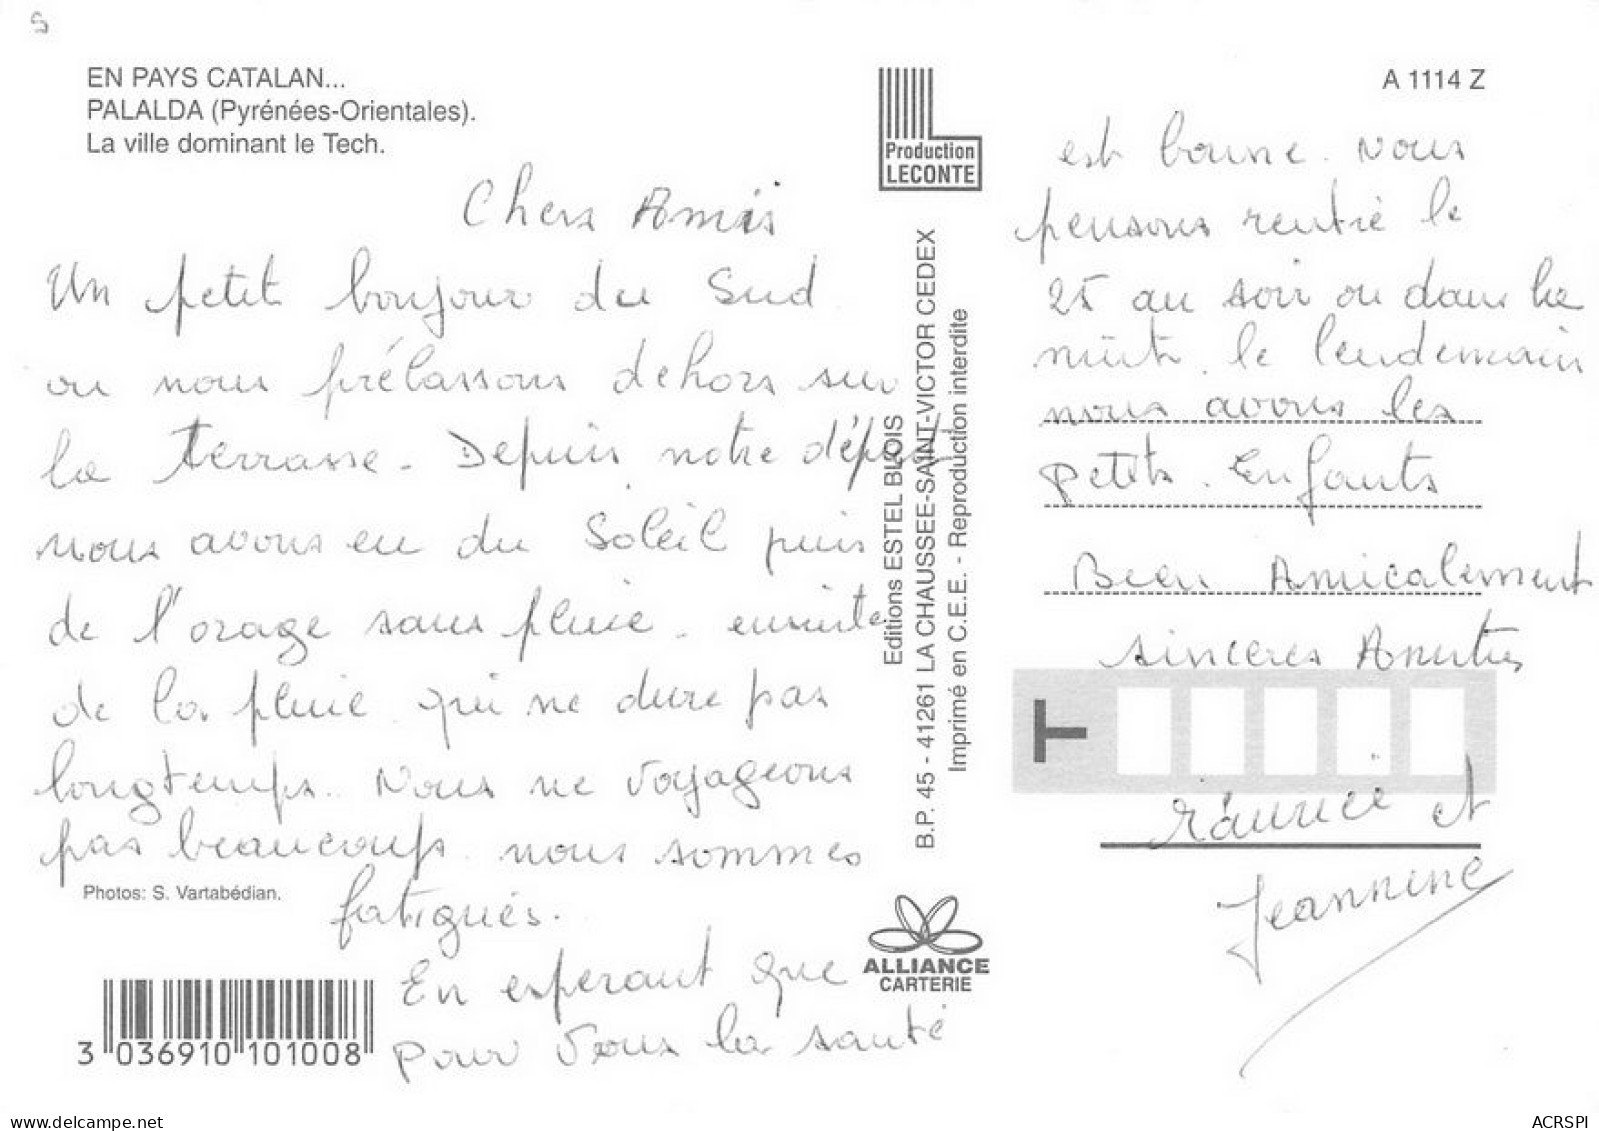 S
EN PAYS CATALAN...
PALALDA (Pyrénées-Orientales).
La ville dominant le Tech.
Chers Amis
Un petit bonjour du Sud
ou nous prélassons dehors sur
la terrasse. Depuis notre départ
nous avons eu du Soleil puis
de l'orage sans pluie. ensuite
de la pluie qui ne dure pas
longtemps. Nous ne voyageons
pas beaucoup nous sommes
fatigués.
En esperant que
pour vous la santé
Photos: S. Vartabédian.
3 036910 101008
Production
LECONTE
Editions ESTEL BLOIS
B.P. 45 - 41261 LA CHAUSSEE-SAINT-VICTOR CEDEX
Imprimé en C.E.E. - Reproduction interdite
ALLIANCE
CARTERIE
A 1114 Z
est bonne. Nous
pensons rentré le
25 au soir ou dans la
nuit. le lendemain
nous avons les
petits. Enfants
Bien Amicalement
sinceres Amitiés
Maurice et
Jeannine
delcampe.net
ACRSPI